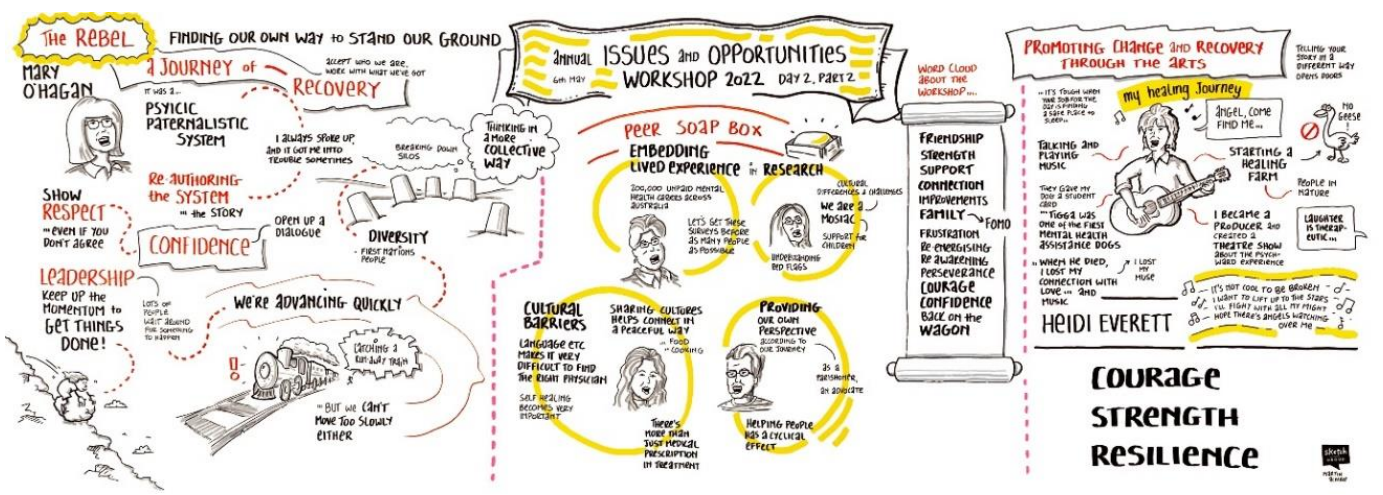 THE REBEL
FINDING OUR OWN WAY to STAND OUR GROUND
MARY
O'HAGAN
a JOURNEY of
RECOVERY
ACCEPT WHO WE ARE,
WORK WITH WHAT WE'VE GOT
IT WAS A...
PSYCIC
PATERNALISTIC
SYSTEM
I ALWAYS SPOKE UP,
AND IT GOT ME INTO
TROUBLE SOMETIMES
RE-AUTHORING
the SYSTEM
... the STORY
SHOW
RESPECT
... EVEN IF YOU
DON'T AGREE
CONFIDENCE
OPEN UP A
DIALOGUE
BREAKING DOWN
SILOS
THINKING IN
a MORE
COLLECTIVE
WAY
DIVERSITY
- FIRST NATIONS
PEOPLE
LEADERSHIP
KEEP UP the
MOMENTUM to
GET THINGS
DONE!
LOTS OF
PEOPLE
WAIT AROUND
FOR SOMETHING
TO HAPPEN
WE'RE ADVANCING QUICKLY
!
CATCHING A
RUN-AWAY TRAIN
... BUT WE CAN'T
MOVE TOO SLOWLY
EITHER
ANNUAL ISSUES AND OPPORTUNITIES
6th MAY WORKSHOP 2022 DAY 2, PART 2
PEER SOAP BOX
EMBEDDING
LIVED EXPERIENCE in RESEARCH
200,000 UNPAID MENTAL
HEALTH CARERS ACROSS
AUSTRALIA
LET'S GET THESE
SURVEYS BEFORE
AS MANY PEOPLE
AS POSSIBLE
CULTURAL
DIFFERENCES & CHALLENGES
WE ARE A
MOSIAC
SUPPORT FOR
CHILDREN
UNDERSTANDING
RED FLAGS
CULTURAL
BARRIERS
LANGUAGE ETC
MAKES IT VERY
DIFFICULT TO FIND
THE RIGHT PHYSICIAN
SELF HEALING
BECOMES VERY
IMPORTANT
SHARING CULTURES
HELPS CONNECT IN
A PEACEFUL WAY
- FOOD
- COOKING
THERE'S
MORE THAN
JUST MEDICAL
PRESCRIPTION
IN TREATMENT
PROVIDING
OUR OWN
PERSPECTIVE
ACCORDING TO
OUR JOURNEY
AS A
PARISHIONER,
AN ADVOCATE
HELPING PEOPLE
HAS A CYCLICAL
EFFECT
WORD CLOUD
ABOUT THE
WORKSHOP....
FRIENDSHIP
STRENGTH
SUPPORT
CONNECTION
IMPROVEMENTS
FAMILY → FOMO
FRUSTRATION
RE ENERGISING
RE AWAKENING
PERSEVERANCE
COURAGE
CONFIDENCE
BACK ON the
WAGON
PROMOTING CHANGE AND RECOVERY
THROUGH THE ARTS
TELLING YOUR
STORY IN A
DIFFERENT WAY
OPENS DOORS
my healing Journey
... IT'S TOUGH WHEN
YOUR JOB FOR THE
DAY IS FINDING
A SAFE PLACE TO
SLEEP...
ANGEL, COME
FIND ME...
NO
GEESE!
TALKING AND
PLAYING
MUSIC
STARTING A
HEALING
FARM
PEOPLE IN
NATURE
THEY GAVE MY
DOG A STUDENT
CARD
... TIGGA WAS
ONE OF the FIRST
MENTAL HEALTH
ASSISTANCE DOGS
I BECAME A
PRODUCER AND
CREATED A
THEATRE SHOW
ABOUT THE PSYCH-
WARD EXPERIENCE
LAUGHTER
IS THERAP-
EUTIC...
... WHEN HE DIED,
I LOST MY
CONNECTION WITH
LOVE ... AND
MUSIC
I LOST
MY
MUSE
IT'S NOT COOL TO BE BROKEN
I WANT TO LIFT UP TO THE STARS
I'LL FIGHT WITH ALL MY MIGHT
HOPE THERE'S ANGELS WATCHING
OVER ME
HEIDI EVERETT
COURAGE
STRENGTH
RESILIENCE
sketch